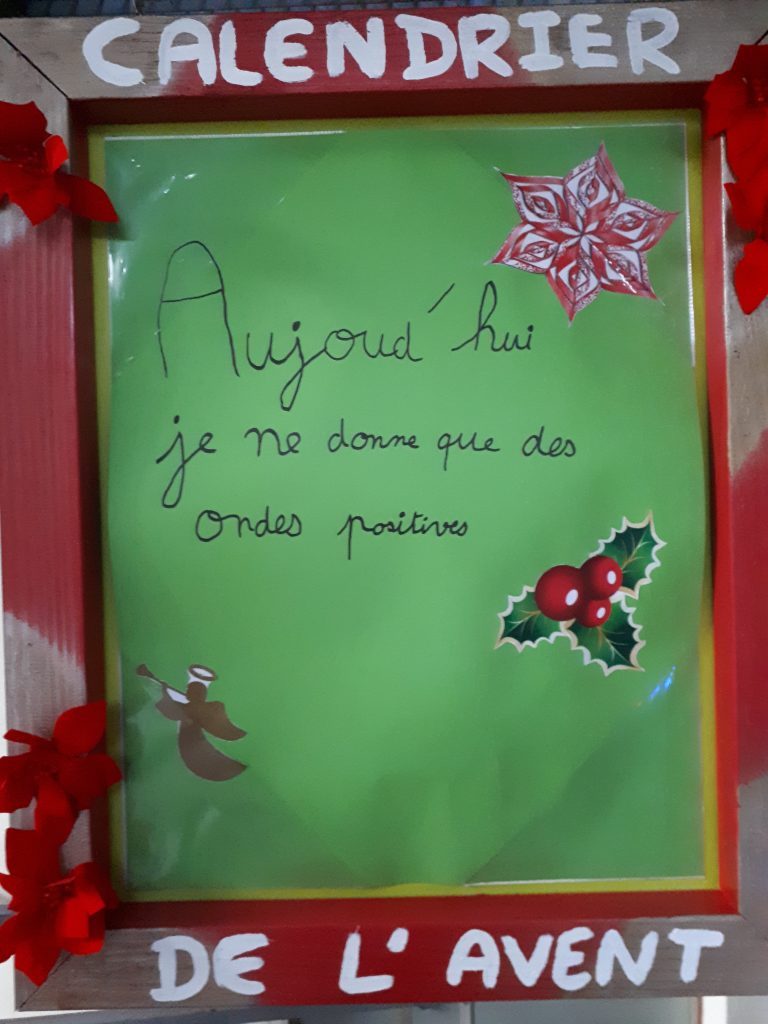 CALENDRIER
Aujoud'hui
je ne donne que des
ondes positives
DE L'AVENT